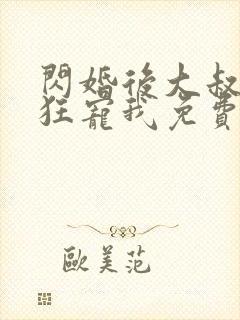 閃婚後大叔
狂寵我免費
歐美范